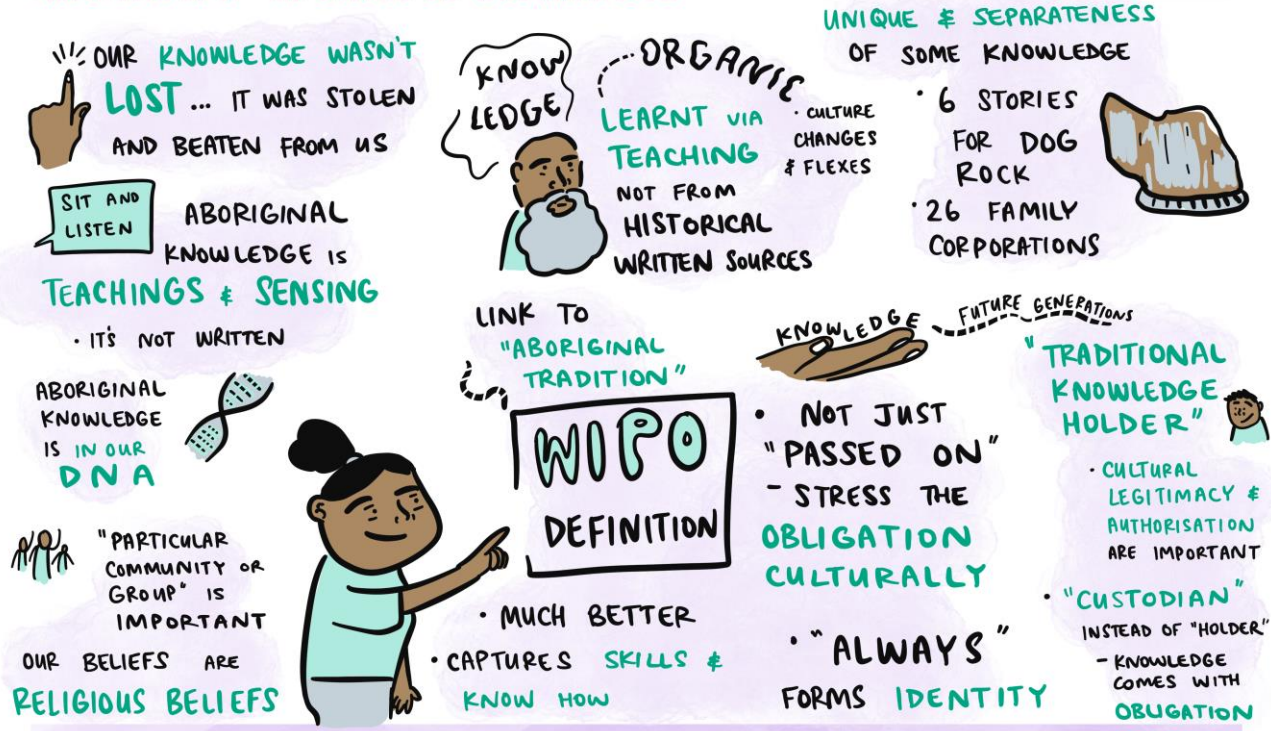 OUR KNOWLEDGE WASN'T
LOST... IT WAS STOLEN
AND BEATEN FROM US
SIT AND
LISTEN
ABORIGINAL
KNOWLEDGE IS
TEACHINGS & SENSING
• IT'S NOT WRITTEN
ABORIGINAL
KNOWLEDGE
IS IN OUR
DNA
"PARTICULAR
COMMUNITY OR
GROUP" IS
IMPORTANT
OUR BELIEFS ARE
RELIGIOUS BELIEFS
KNOW
LEDGE
ORGANIC
• CULTURE
CHANGES
& FLEXES
LEARNT VIA
TEACHING
NOT FROM
HISTORICAL
WRITTEN SOURCES
LINK TO
"ABORIGINAL
TRADITION"
WIPO
DEFINITION
• MUCH BETTER
• CAPTURES SKILLS &
KNOW HOW
UNIQUE & SEPARATENESS
OF SOME KNOWLEDGE
• 6 STORIES
FOR DOG
ROCK
• 26 FAMILY
CORPORATIONS
KNOWLEDGE
FUTURE GENERATIONS
• NOT JUST
"PASSED ON"
- STRESS THE
OBLIGATION
CULTURALLY
• "ALWAYS"
FORMS IDENTITY
"TRADITIONAL
KNOWLEDGE
HOLDER"
• CULTURAL
LEGITIMACY &
AUTHORISATION
ARE IMPORTANT
• "CUSTODIAN"
INSTEAD OF "HOLDER"
- KNOWLEDGE
COMES WITH
OBLIGATION